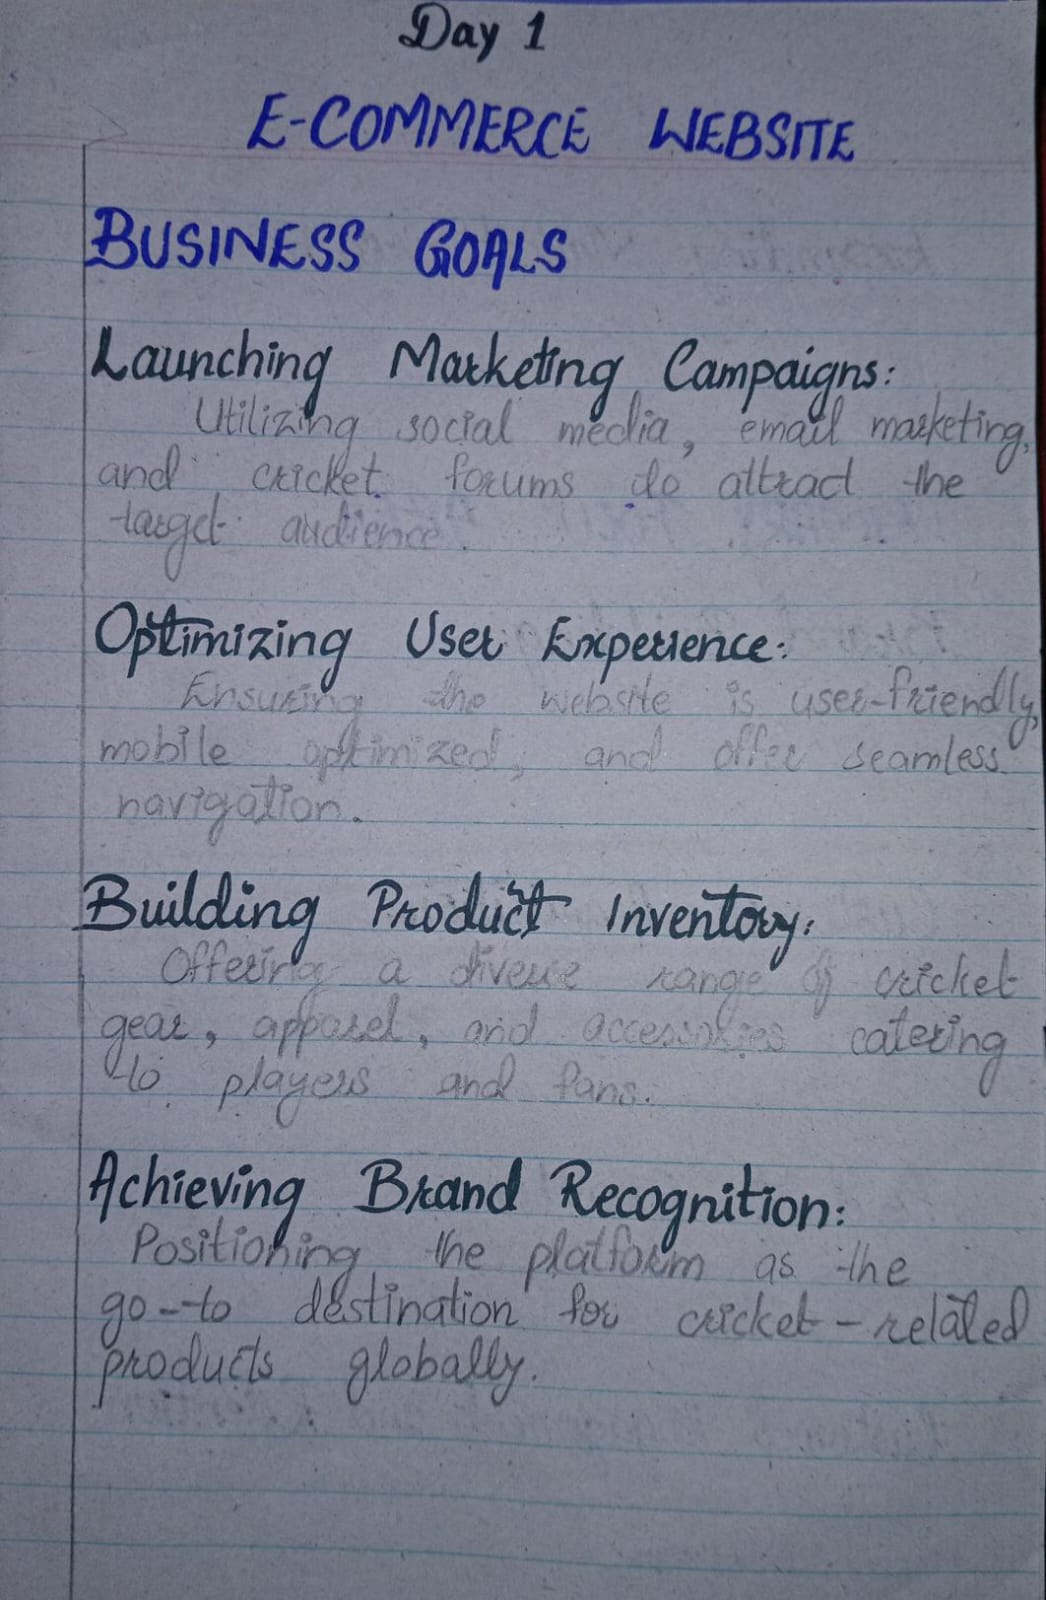 Day 1
E-COMMERCE WEBSITE
BUSINESS GOALS
Launching Marketing Campaigns:
Utilizing social media, email marketing,
and cricket forums to attract the
target audience.
Optimizing User Experience:
Ensuring the website is user-friendly,
mobile optimized, and offer seamless
navigation.
Building Product Inventory:
Offering a diverse range of cricket
gear, apparel, and accessories catering
to players and fans.
Achieving Brand Recognition:
Positioning the platform as the
go-to destination for cricket-related
products globally.